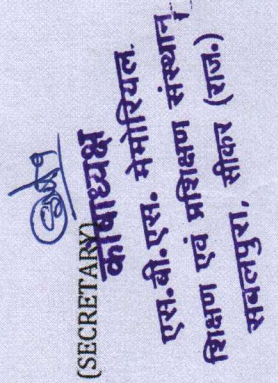 (SECRETARY)
कोषाध्यक्ष
एस.बी.एस. मेमोरियल
शिक्षण एवं प्रशिक्षण संस्थान
सबलपुरा, सीकर (राज.)